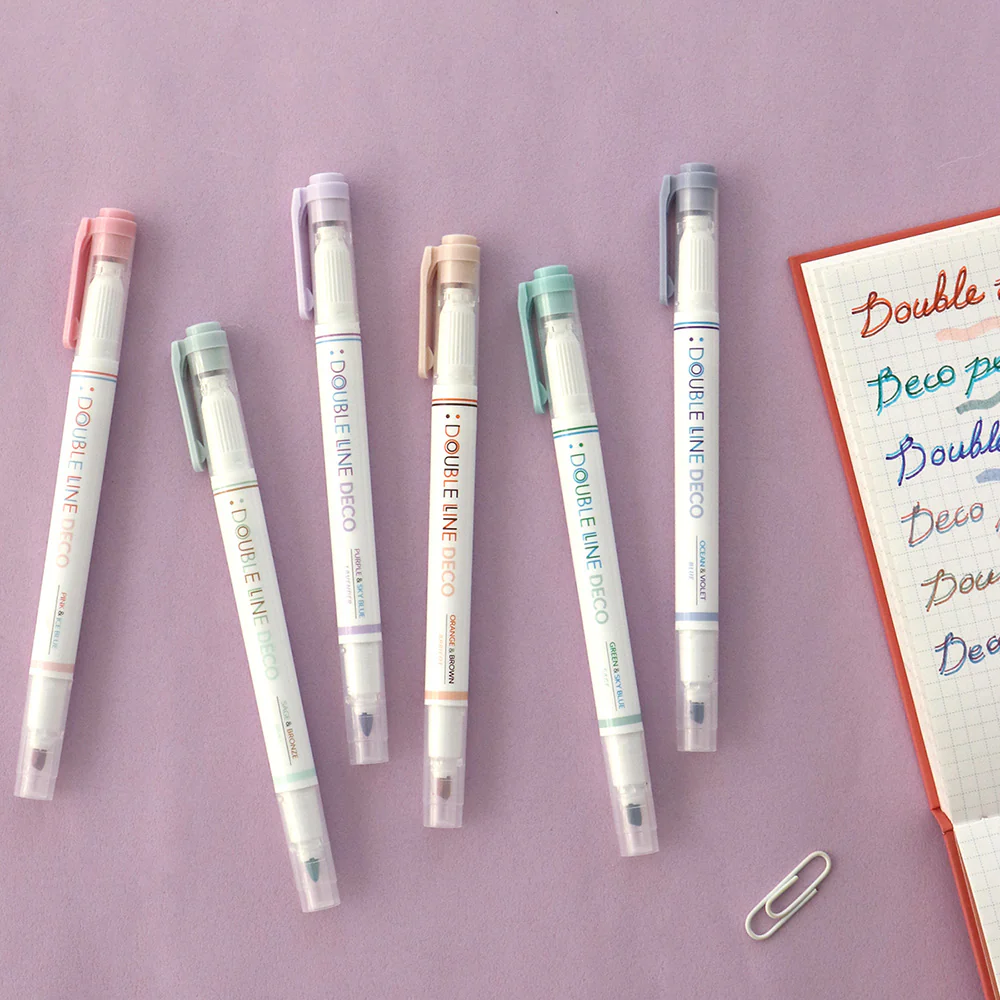 :DOUBLE LINE DECO
PINK & ICE BLUE
:DOUBLE LINE DECO
SAGE & BRONZE
:DOUBLE LINE DECO
PURPLE & SKY BLUE
LAVENDER
:DOUBLE LINE DECO
ORANGE & BROWN
APRICOT
:DOUBLE LINE DECO
GREEN & SKY BLUE
:DOUBLE LINE DECO
OCEAN & VIOLET
BLUE
Double
Deco pe
Double
Deco
Dou
Dec